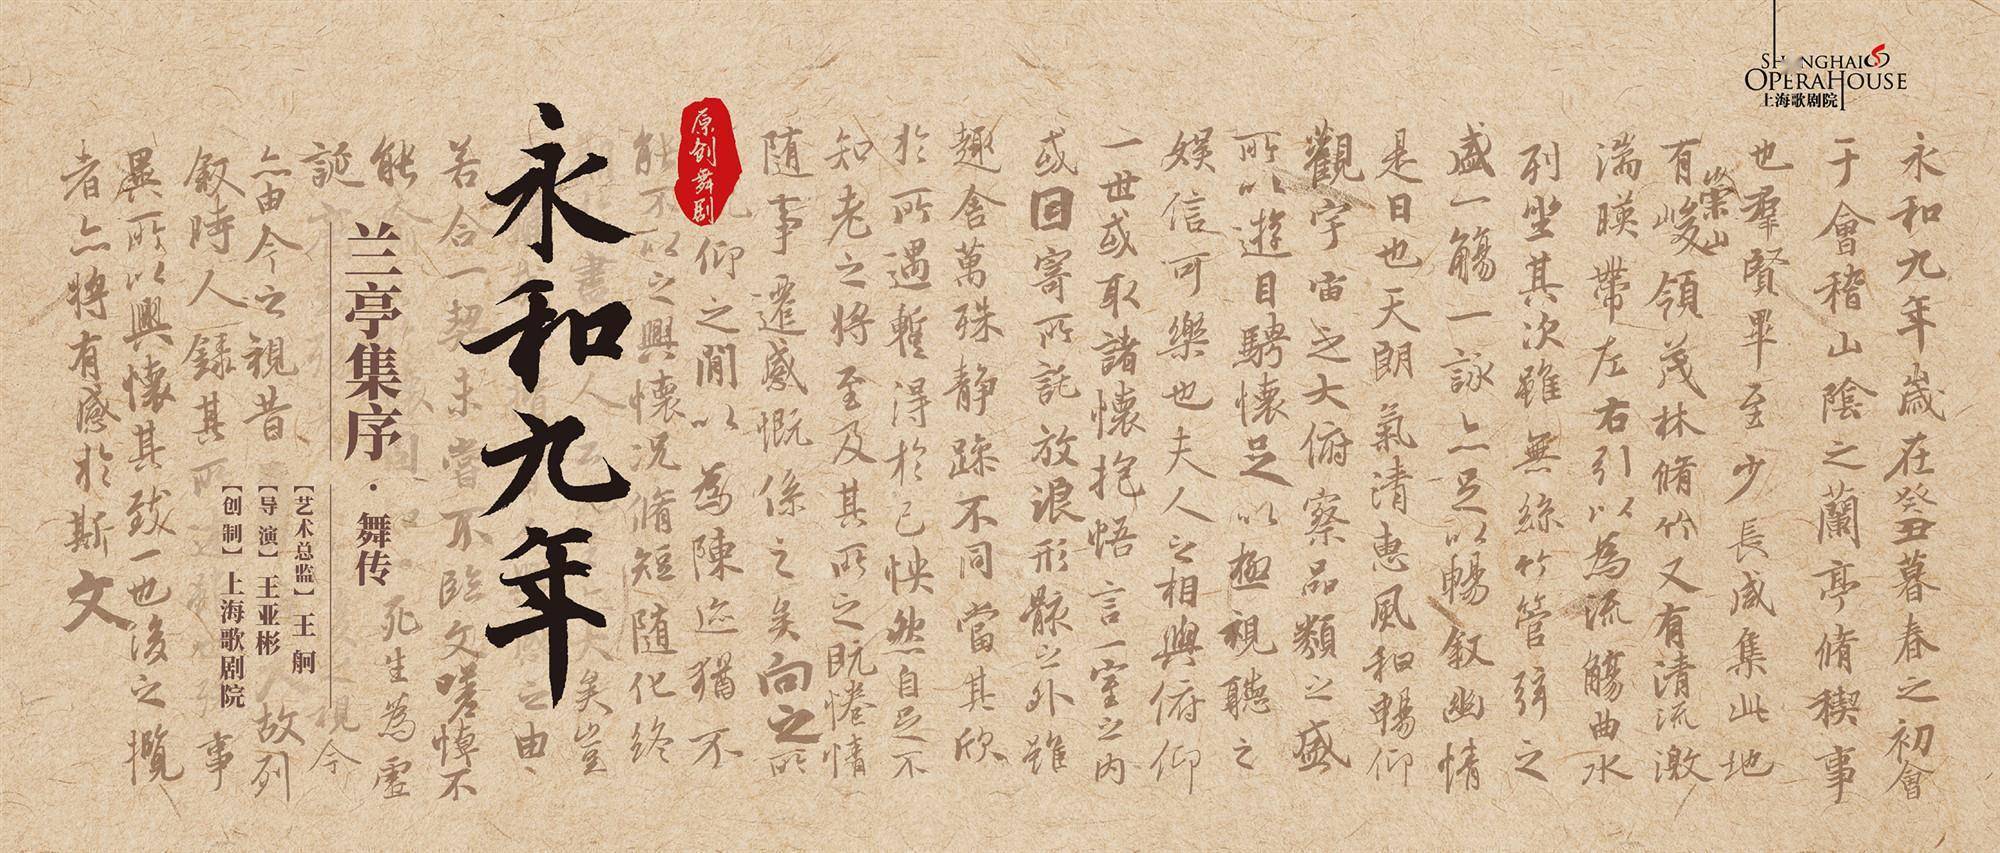 SHANGHAI
OPERA HOUSE
上海歌剧院
永和九年歲在癸丑暮春之初會
于會稽山陰之蘭亭脩稧事
也羣賢畢至少長咸集此地
有崇山峻領茂林脩竹又有清流激
湍暎帶左右引以為流觴曲水
列坐其次雖無絲竹管弦之
盛一觴一詠亦足以暢敘幽情
是日也天朗氣清惠風和暢仰
觀宇宙之大俯察品類之盛
所以遊目騁懷足以極視聽之
娛信可樂也夫人之相與俯仰
一世或取諸懷抱悟言一室之內
或因寄所託放浪形骸之外雖
趣舍萬殊静躁不同當其欣
於所遇暫得於己怏然自足不
知老之將至及其所之既惓情
随事遷感慨係之矣向之所
仰之閒以為陳迹猶不
能不以之興懷況脩短随化終
原创舞剧
永和九年
矣豈
之由
若合一契未嘗不臨文嗟悼不
能
死生為虛
兰亭集序·舞传
【艺术总监】王舸
【导演】王亚彬
【创制】上海歌剧院
誕
視今
亦由今之視昔
故列
敘時人録其所
事
異所以興懷其致一也後之攬
者亦將有感於斯文